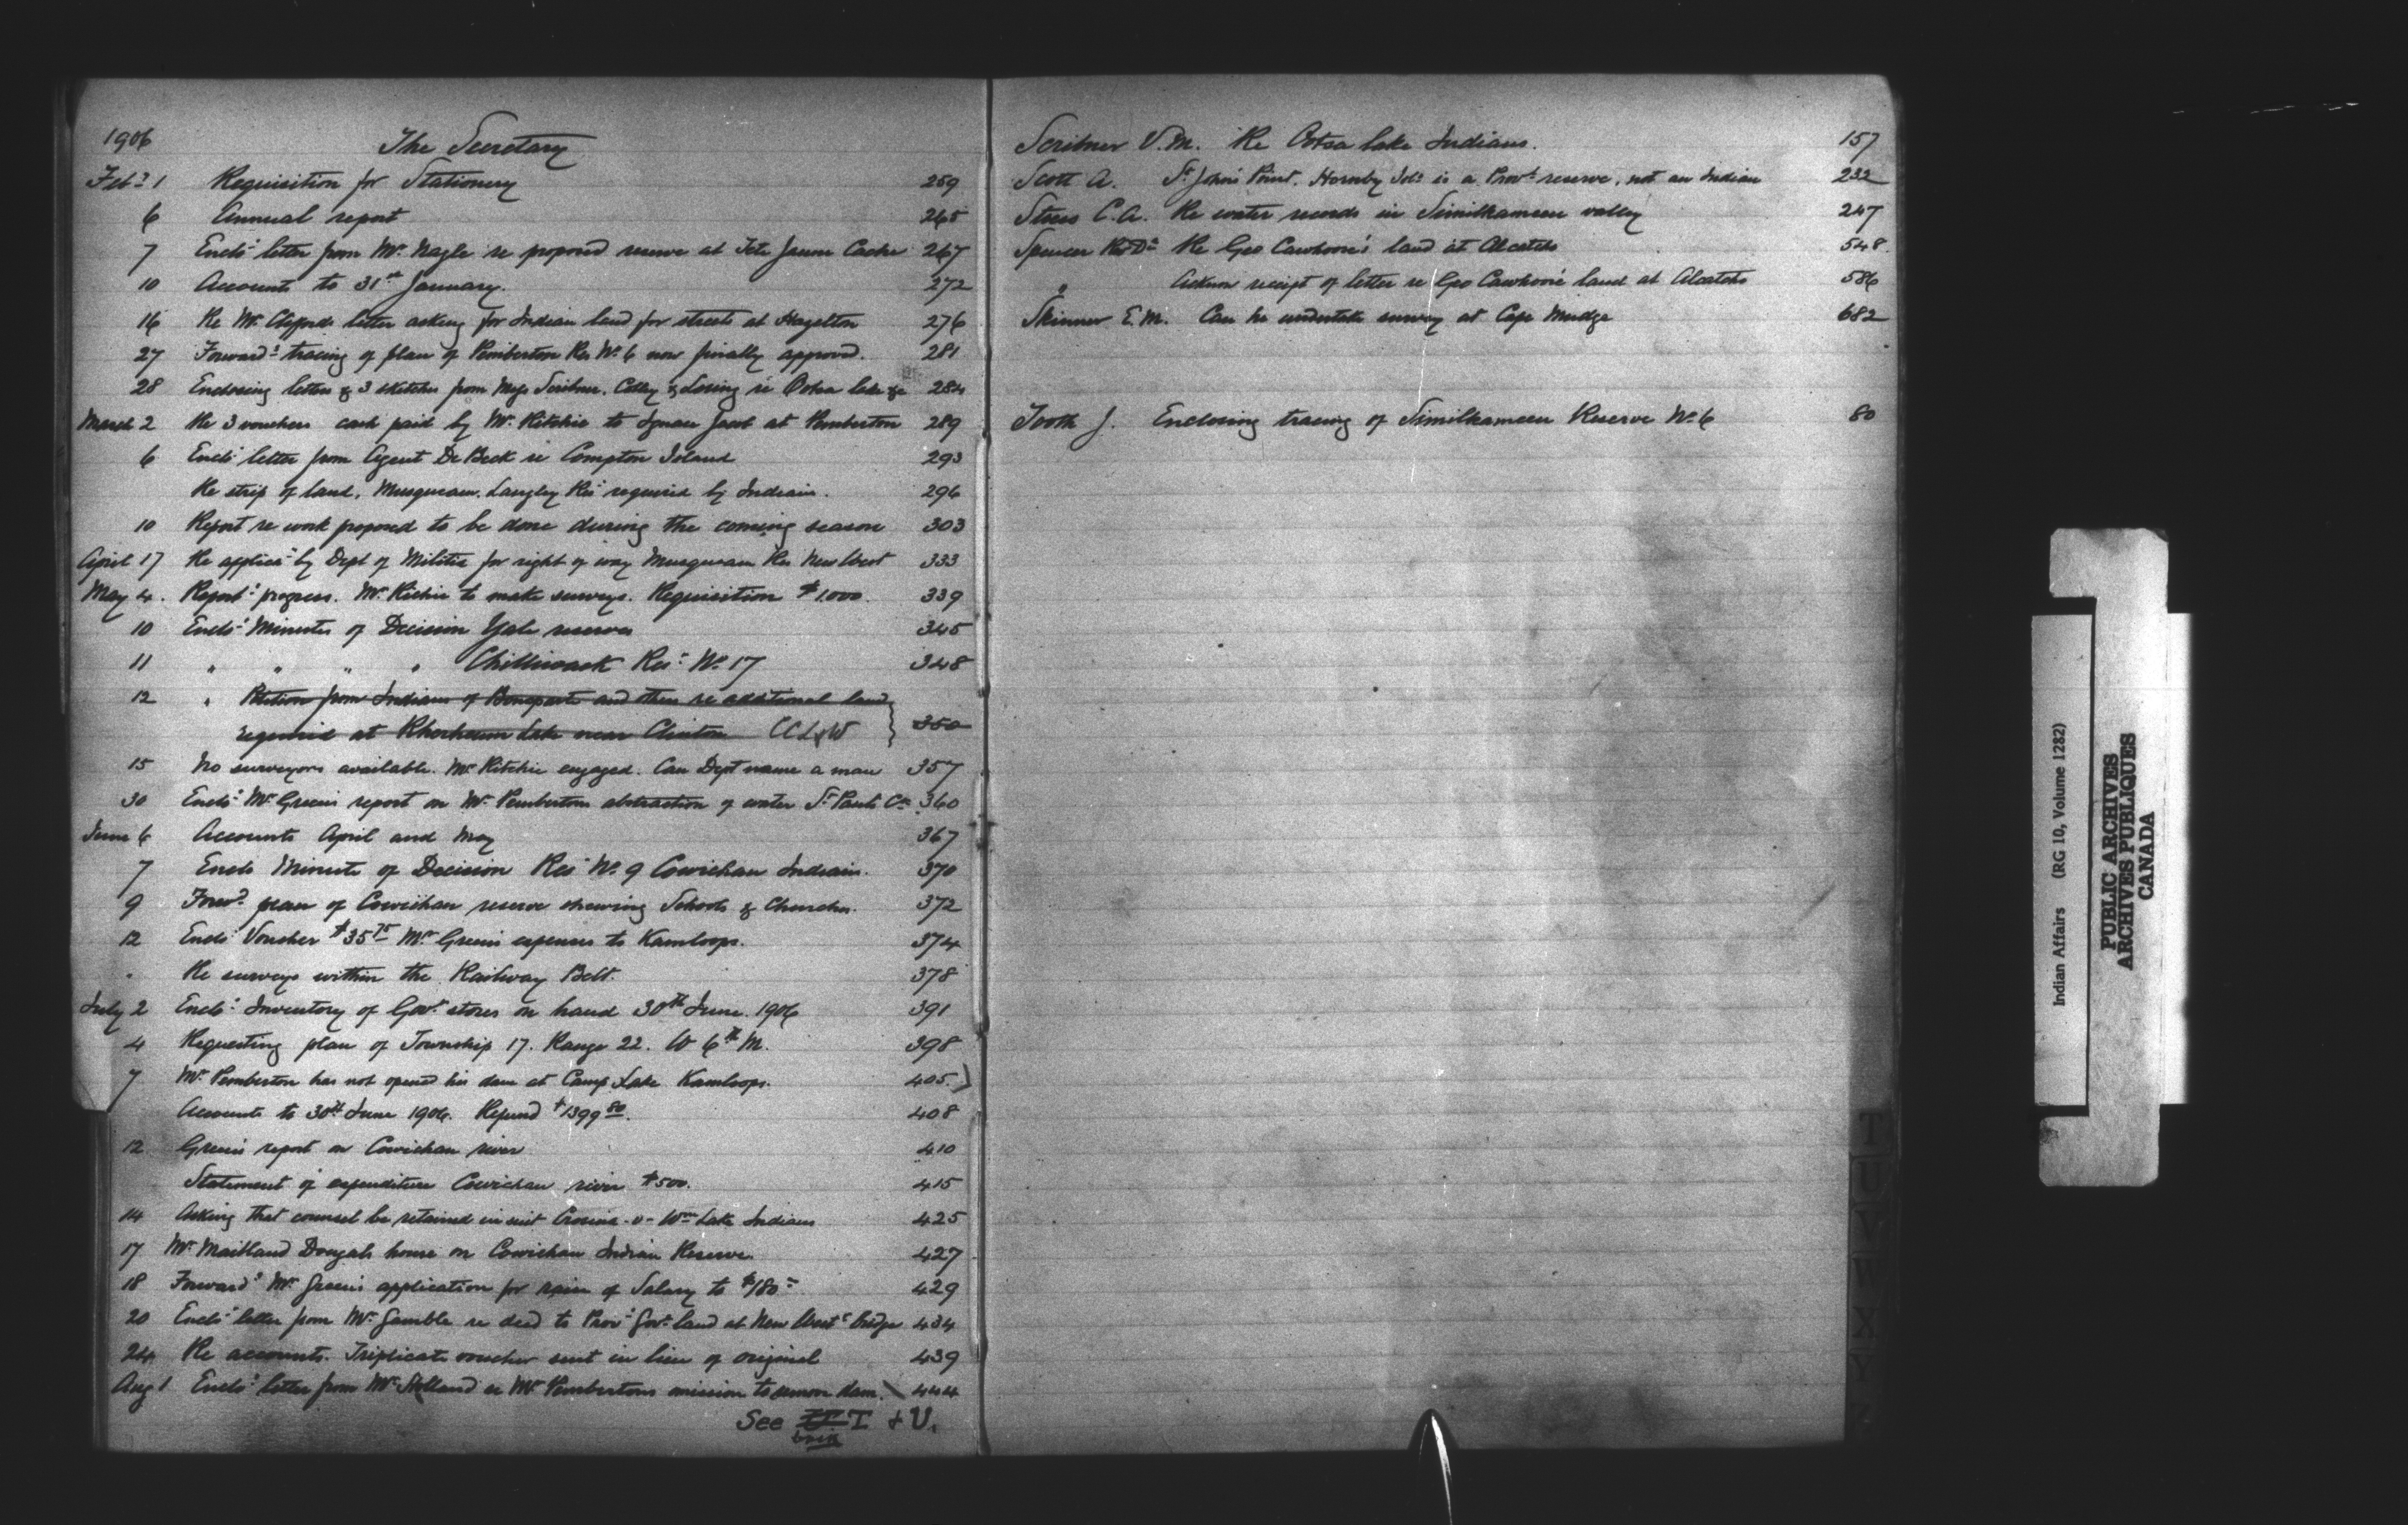 1906 The Secretary
Feby 1 Requisition for Stationery 259
6 Annual report 265
7 Encls letter from Mr Nagle re proposed reserve at Tete Jaune Cache 267
10 Accounts to 31st January. 272
16 Re Mr Clifford's letter asking for Indian land for streets at Hazelton 276
27 Forwards tracing of plan of Pemberton Res No 6 now finally approved. 281
28 Enclosing letters & 3 sketches from Scribner, & re Ootsa lake &c 284
March 2 Re 3 vouchers cash paid by Mr Ritchie to Jacob at Pemberton 289
6 Encls letter from Agent DeBeck re Compton Island 293
Re strip of land, Musqueam, Langley Res required by Indians. 296
10 Report re work proposed to be done during the coming season 303
April 17 Re applicn by Dept of Militia for right of way Musqueam Res New West 333
May 4. Reports progress. Mr Ritchie to make surveys. Requisition $1,000. 339
10 Encls Minutes of Decision Yale reserves 345
11 " " " " Chilliwack Res: No 17 348
12 " Petition from Indians of Bonaparte and others re additional land
required at Lake near Clinton CCL&W 350
15 No surveyors available. Mr Ritchie engaged. Can Dept name a man 357
30 Encls Mr Green's report on Mr Pembertons abstraction of water St Pauls Ck 360
June 6 Accounts April and May 367
7 Encls Minute of Decision Res No 9 Cowichan Indians. 370
9 Forwd plan of Cowichan reserve shewing Schools & Churches. 372
12 Encls Voucher $35 75 Mr Greens expenses to Kamloops. 374
" Re surveys within the Railway Belt. 378
July 2 Encls Inventory of Govt stores on hand 30th June. 1906 391
4 Requesting plan of Township 17. Range 22. W 6th M. 398
7 Mr Pemberton has not opened his dam at Camp Lake Kamloops. 405
Accounts to 30th June 1906. Refund $1399 80. 408
12 Green's report on Cowichan river 410
Statement of expenditure Cowichan river $500. 415
14 Asking that counsel be retained in suit -v- Wms Lake Indians 425
17 Mr Maitland Dougals house on Cowichan Indian Reserve. 427
18 Forwards Mr Green's application for raise of Salary to $180- 429
20 Encls letter from Mr Gamble re deed to Prov: Govt land at New Westr bridge 434
24. Re accounts. Triplicate voucher sent in lieu of original 439
Aug 1 Encls letter from Mr re Mr Pembertons to dam. 444
See T & U.
Scribner V.M. Re Ootsa lake Indians. 157
Scott A. St John's Point. Hornby Isld is a Provl reserve, not an Indian 232
C.A. Re water records in Similkameen valley 247
Spencer Re Geo Cawhoon's land at Alcatcho 548.
" Acknow receipt of letter re Geo Cawhoon's land at Alcatcho 586
Skinner E.M. Can he undertake survey at Cape Mudge 682
Tooth J. Enclosing tracing of Similkameen Reserve No 6 80
T
U
V
W
X
Y
Z
Indian Affairs (RG 10, Volume 1282)
PUBLIC ARCHIVES
ARCHIVES PUBLIQUES
CANADA